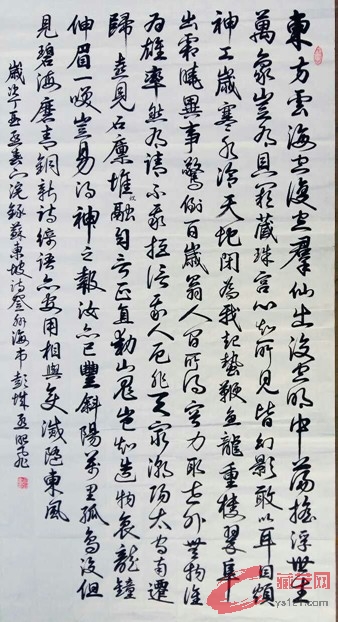 東方雲海空復空羣仙出沒空明中蕩搖浮世生
萬象豈有貝闕藏珠宮心知所見皆幻影敢以耳目煩
神工歲寒水冷天地閉為我起蟄鞭魚龍重樓翠阜
出霜曉異事驚倒百歲翁人間所得容力取世外無物誰
為雄率然有請不我拒信我人厄非天窮潮陽太守南遷
歸喜見石廩堆祝融自言正直動山鬼豈知造物哀龍鐘
伸眉一笑豈易得神之報汝亦已豐斜陽萬里孤鳥沒但
見碧海磨青銅新詩綺語亦安用相與變滅隨東風
歲次丁酉錄蘇東坡詩登州海市